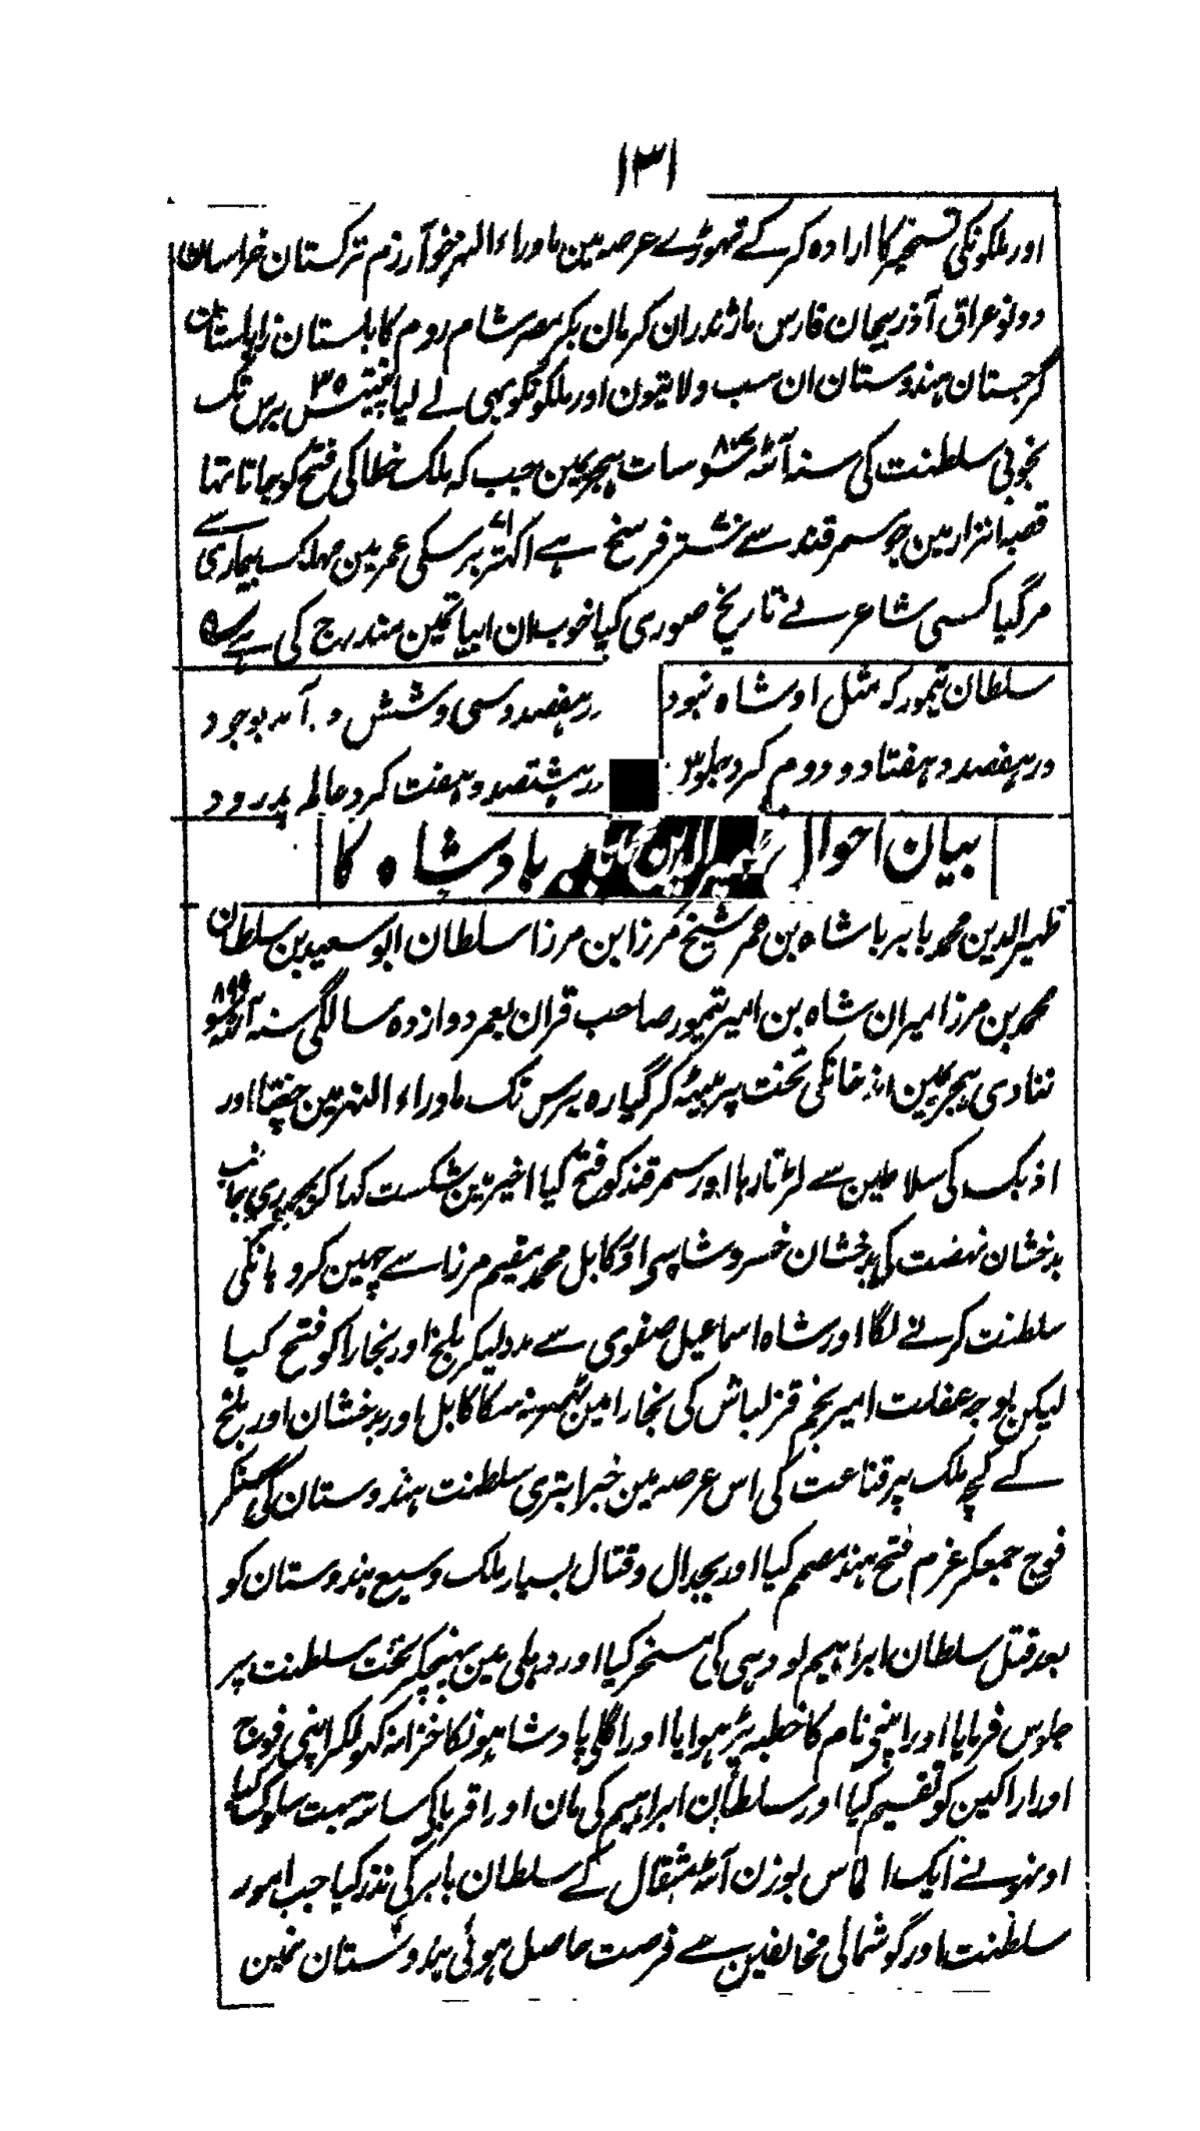 ۱۳۱
اور ملکونکی تسخیر کا ارادہ کر کے تهوڑے عرصہ مین ماوراء النهر خوارزم ترکستان خراسان
دونو عراق آذربیجان فارس ماژندران کرمان بکر مصر شام روم کابلستان زابلستان
گرجستان ہندوستان ان سب ولایتون اور ملکونکو بهی لے لیا پینتیس ۳۵ برس تک
بخوبی سلطنت کی سنہ آٹهہ سو سات ہجری مین جب کہ ملک خطا کی فتح کو جاتا تها
قصبہ انزار مین جو سمرقند سے فرسخ ہے اکہتر ۷۱ برسکی عمر مین مہلک بیماری سے
مرگیا کسی شاعر نے تاریخ صوری کیا خوب ان ابیات مین مندرج کی ہے
سلطان تیمور کہ مثل او شاہ نبود
در ہفصد و سی و شش و آمد بوجود
در ہفصد و ہفتاد و دوم کرد جلوس
در ہشتصد و ہفت کرد عالم پدرود
بیان احوال ظہیر الدین بابر بادشاہ کا
ظہیر الدین محمد بابر باشاہ بن عمر شیخ مرزا بن مرزا سلطان ابو سعید بن سلطان
محمد بن مرزا میران شاہ بن امیر تیمور صاحب قران بعمر دوازدہ سالگی سنہ آٹهہ سو ۸۹۹
ننادی ہجری مین خانکی تخت پر بیٹهہ کر گیارہ برس تک ماوراء النهر مین چغتا اور
اذبک کی سلاطین سے لڑتا رہا اور سمرقند کو فتح کیا اخیر مین شکست کها کو جانب
بدخشان نہضت کی بدخشان خسرو شا سی اور کابل محمد مقیم مرزا سے چهین کر وہانکی
سلطنت کرنے لگا اور شاہ اسماعیل صفوی سے مدد لیکر بلخ اور بخارا کو فتح کیا
لیکن بوجہ غفلت امیر نجم قزلباش کی بخارا مین نہ سکا کابل اور بدخشان اور بلخ
کے کچهہ ملک پر قناعت کی اس عرصہ مین خبر ابتری سلطنت ہندوستان کی سنکر
فوج جمعکر عزم فتح ہند مصمم کیا اور بجدال و قتال بسیار ملک وسیع ہندوستان کو
بعد قتل سلطان ابراہیم لودہی کی مسخر کیا اور دہلی مین پہنچکر تخت سلطنت پر
جلوس فرمایا اور اپنی نام کا خطبہ پڑہوایا اور اگلی پادشاہونکا خزانہ کهولکر اپنی فوج
اور اراکین کو تقسیم کیا اور سلطان ابراہیم کی مان اور اقربا کی ساتهہ بہت سلوک کیا
اونہونے ایک الماس بوزن آٹهہ مثقال کے سلطان بابر کی نذر کیا جب امور
سلطنت اور گوشمالی مخالفین سے فرصت حاصل ہوئی ہندوستان مین